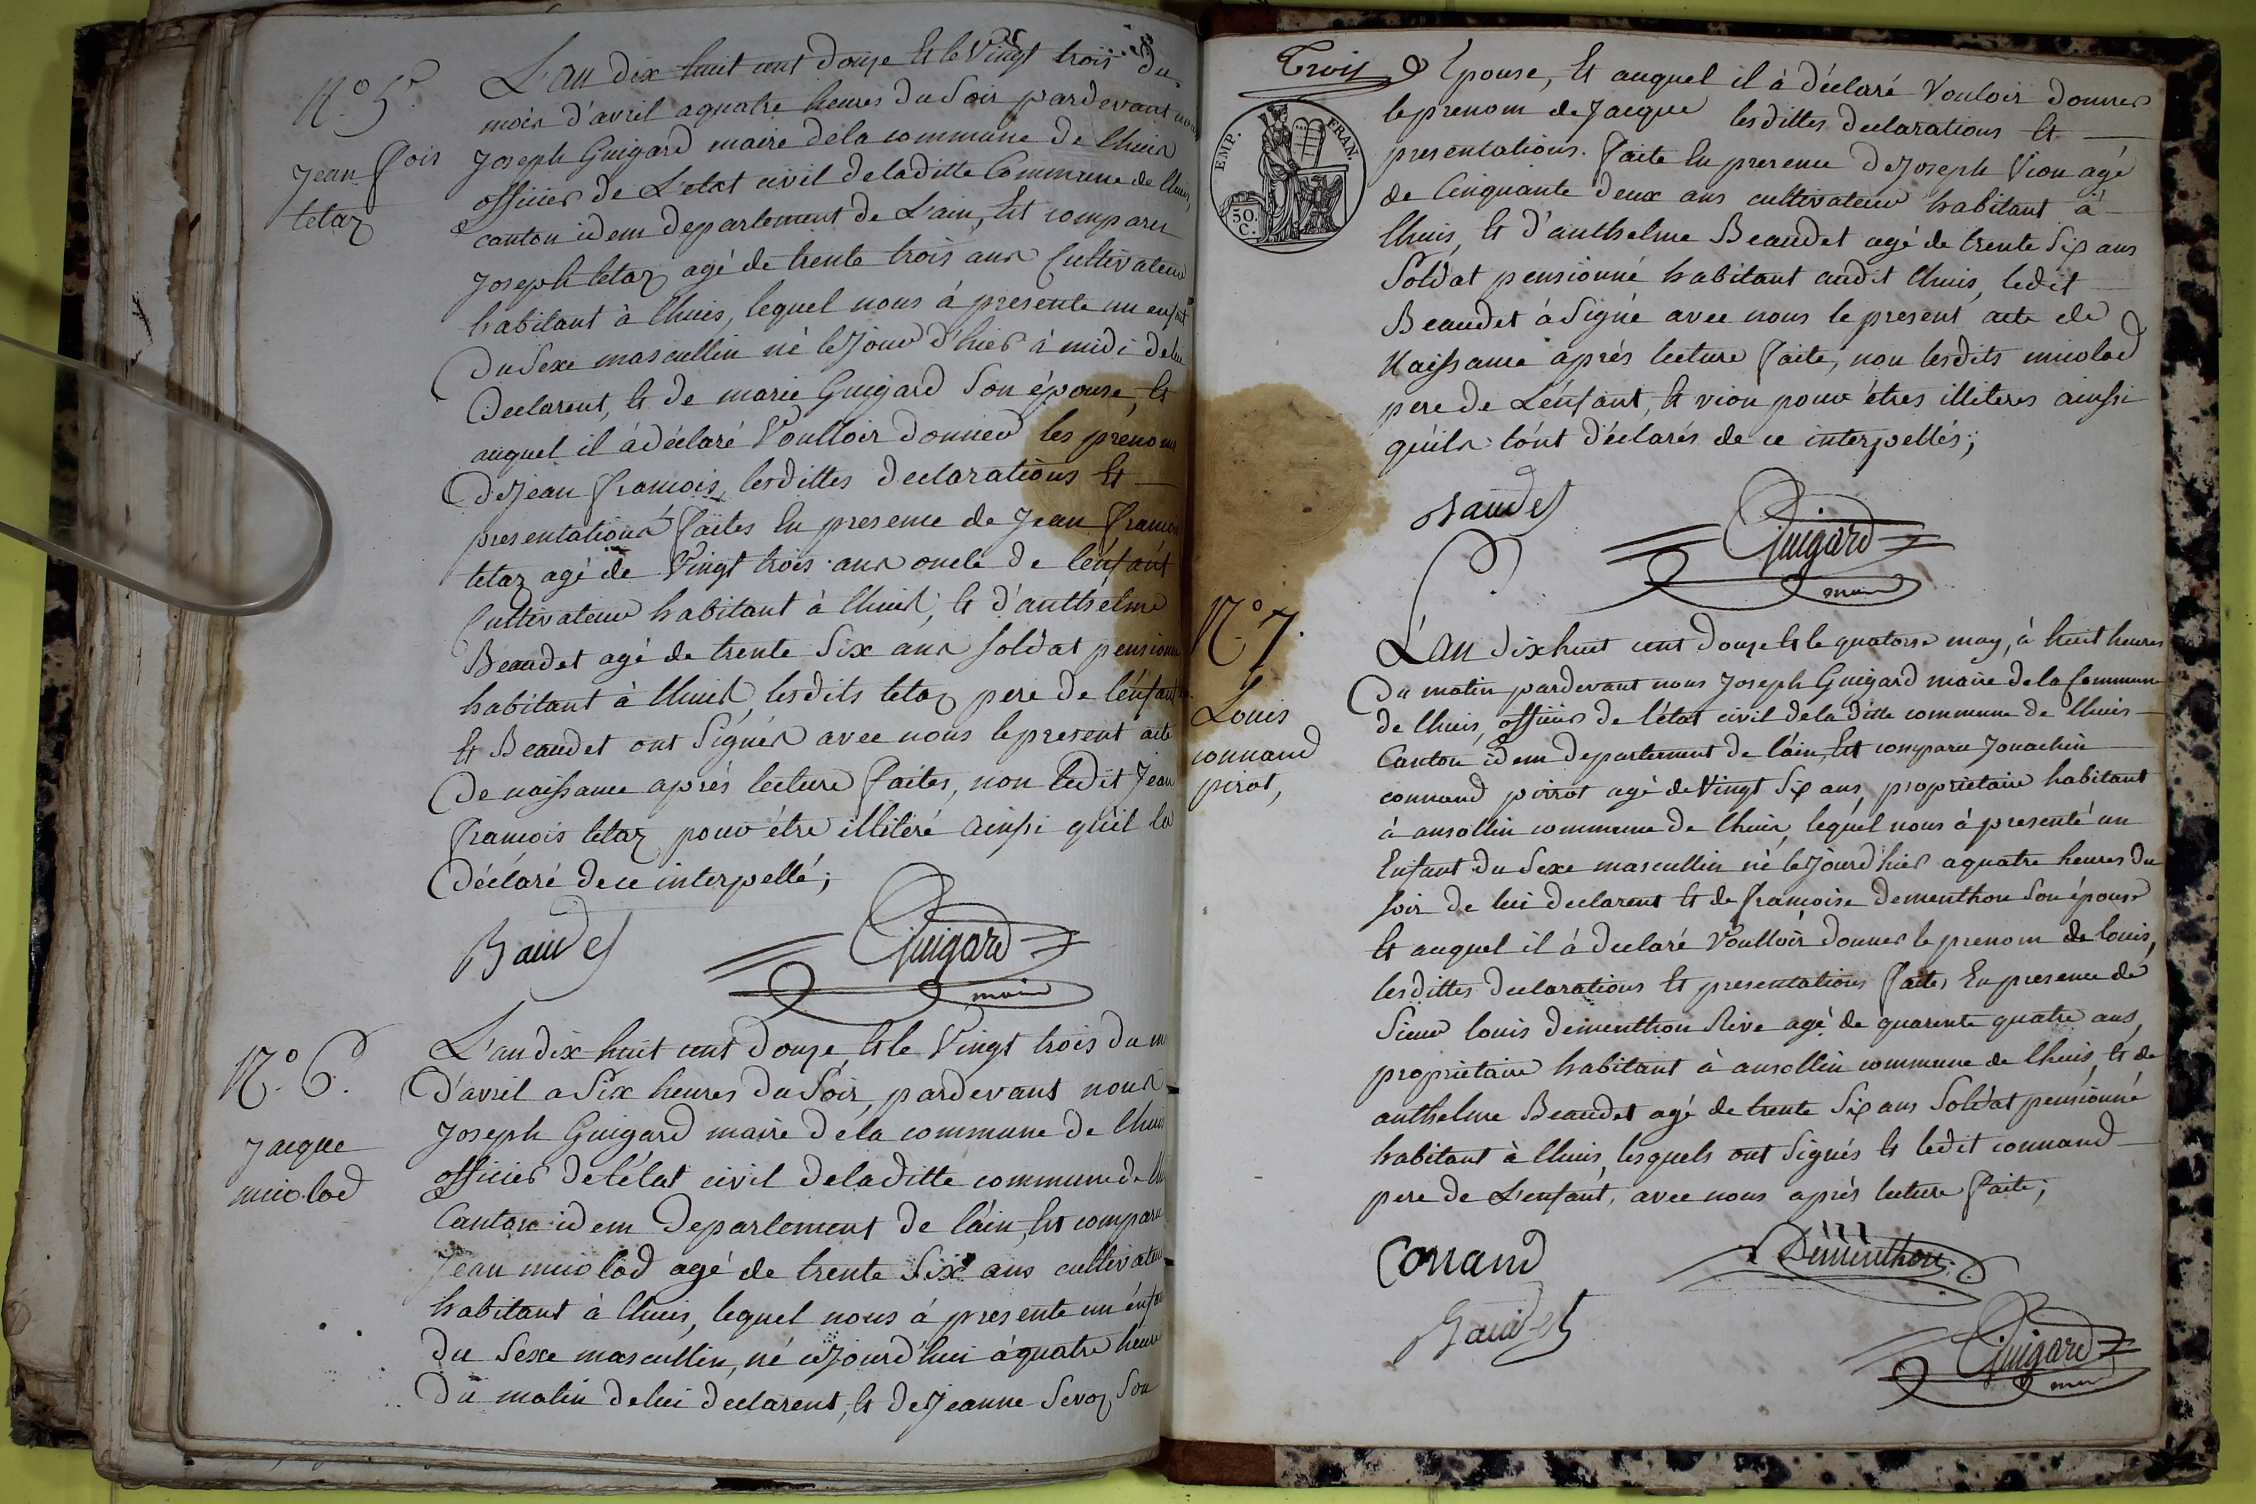 N.° 5.
Jean fois
tetaz
L'an dix huit cent douze Et le Vingt trois du
mois d'avril a quatre heures du Soir pardevant nous
Joseph Guigard maire de la commune de lhuis
officier de L'etat civil de laditte Commune de lhuis,
canton idem departement de L'ain, Est comparu
Joseph tetaz agé de trente trois ans Cultivateur
habitant à lhuis, lequel nous à presente un enfant
du Sexe mascullin né le jour d'hier à midi de lui
Declarent, Et de marie Guigard Son épouse, Et
auquel il à déclaré Voulloir donner les prenoms
de Jean francois, lesdittes declarations Et
presentations faites En presence de Jean francois
tetaz agé de Vingt trois ans oncle de l'enfant
Cultivateur habitant à lhuis, Et d'anthelme
Beaudet agé de trente Six ans soldat pensionné
habitant à lhuis, lesdits tetaz pere de l'enfant
Et Beaudet ont Signés avec nous le present acte
de naissance aprés lecture faites, non ledit Jean
francois tetaz pour étre illiteré ainsi qu'il la
déclaré de ce interpellé;
Baudet
Guigard
maire
N.° 6.
Jacque
miolad
L'an dix huit cent douze, Et le Vingt trois du
d'avril a Six heures du Soir, pardevant nous
Joseph Guigard maire de la commune de lhuis
officier de l'état civil de laditte commune de
Canton idem Departement de l'ain, Est comparu
Jean miolad agé de trente Six ans cultivateur
habitant à lhuis, lequel nous à presente un énfant
du Sexe mascullin, né cejourd'hui à quatre heures
du matin de lui declarent, Et de Jeanne Sevoz Son
Trois
EMP. FRAN.
50.
C.
Epouse, Et auquel il à déclaré Vouloir donner
le prenom de Jacque lesdittes declarations Et
presentations. faite En presence de Joseph Vion agé
de Cinquante deux ans cultivateur habitant à
lhuis, Et d'anthelme Beaudet agé de trente Six ans
Soldat pensionné habitant audit lhuis, ledit
Beaudet à Signé avec nous le present acte de
Naissance aprés lecture faite, non lesdits miolad
pere de L'enfant, Et vion pour étres illiteres ainssi
qu'ils l'ont déclarés de ce interpellés;
Baudet
Guigard
maire
N.° 7.
Louis
connand
pirot,
L'an dix huit cent douze Et le quatorze may, à huit heures
du matin pardevant nous Joseph Guigard maire de la Commune
de lhuis, officier de l'état civil de la ditte commune de lhuis
Canton idem departement de l'ain, Est comparu Jouachin
connand pirrot agé de Vingt Six ans, proprietaire habitant
à ansollin commune de lhuis, lequel nous à presenté un
Enfant du Sexe mascullin né le jourd'hier a quatre heures du
soir de lui declarent Et de francoise Dementhon Son épouse
Et auquel il à declaré Voulloir donner le prenom de louis,
lesdittes declarations Et presentations faites En presence de
Sieur louis dementhon Rive agé de quarente quatre ans,
proprietaire habitant à ansollin commune de lhuis, Et de
anthelme Beaudet agé de trente Six ans Soldat pensionné
habitant à lhuis, lesquels ont Signés Et ledit connand
pere de L'enfant, avec nous aprés lecture faite;
Conand
Dementhon
Baudet
Guigard
maire